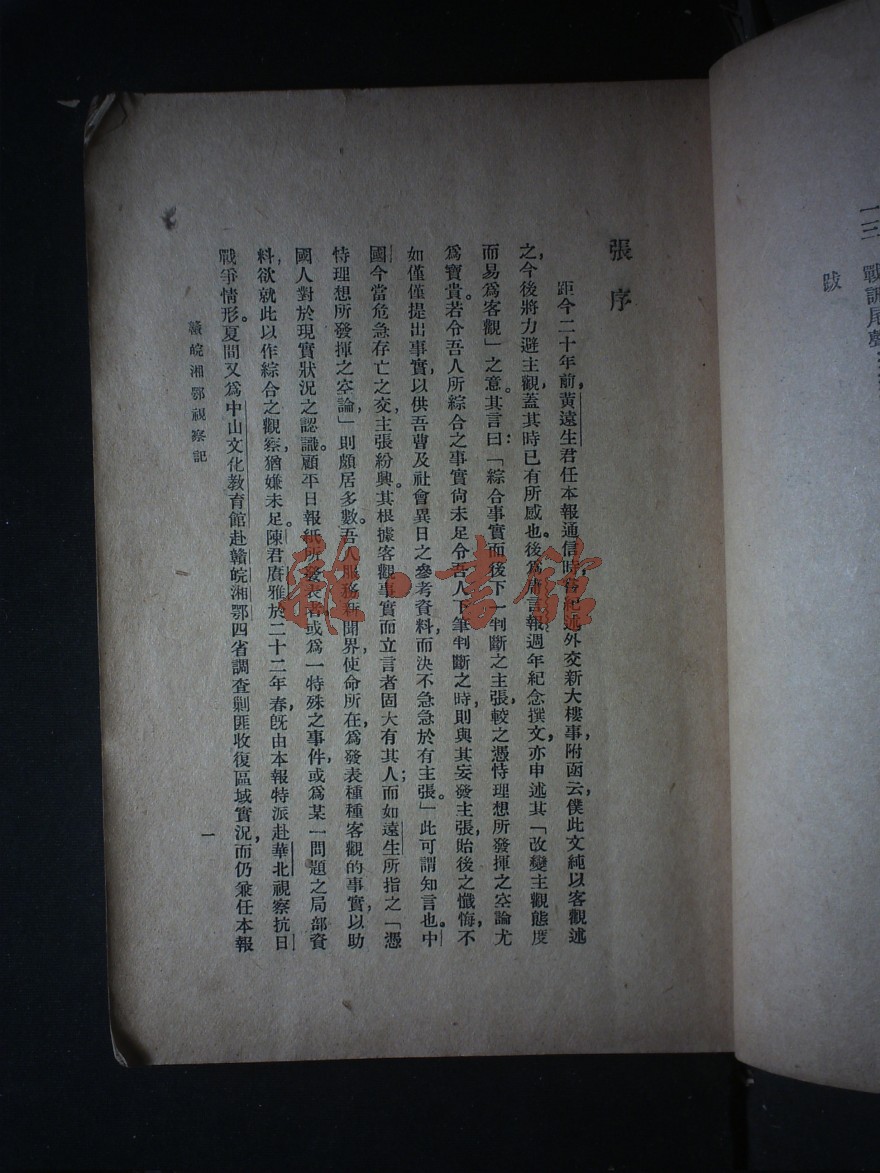 張序
距今二十年前，黃遠生君任本報通信時，答紀述外交新大樓事，附函云，僕此文純以客觀述
之，今後將力避主觀，蓋其時已有所感也。後爲庸言報週年紀念撰文，亦申述其「改變主觀態度
而易爲客觀」之意。其言曰：「綜合事實而後下一判斷之主張，較之憑恃理想所發揮之空論尤
爲寶貴。若令吾人所綜合之事實尙未足令吾人下筆判斷之時，則與其妄發主張，貽後之懺悔，不
如僅僅提出事實，以供吾曹及社會異日之參考資料，而決不急急於有主張。」此可謂知言也。中
國今當危急存亡之交，主張紛興。其根據客觀事實而立言者固大有其人；而如遠生所指之「憑
恃理想所發揮之空論」則頗居多數。吾人服務新聞界，使命所在，爲發表種種客觀的事實，以助
國人對於現實狀況之認識。顧平日報紙所發表者，或爲一特殊之事件，或爲某一問題之局部資
料，欲就此以作綜合之觀察，猶嫌未足。陳君賡雅於二十二年春，旣由本報特派赴華北視察抗日
戰爭情形。夏間又爲中山文化教育館赴贛皖湘鄂四省調查剿匪收復區域實況，而仍兼任本報
贛皖湘鄂視察記
一
一三
跋
雜·書館